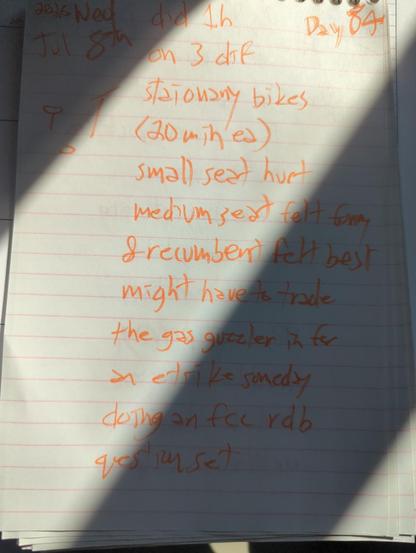 2026 Wed did 1h Day 84
Jul 8th on 3 dif
staionary bikes
(20 min ea)
small seat hurt
medium seat felt funny
& recumbent felt best
might have to trade
the gas guzzler in for
an etrike someday
doing an fcc rdb
question set